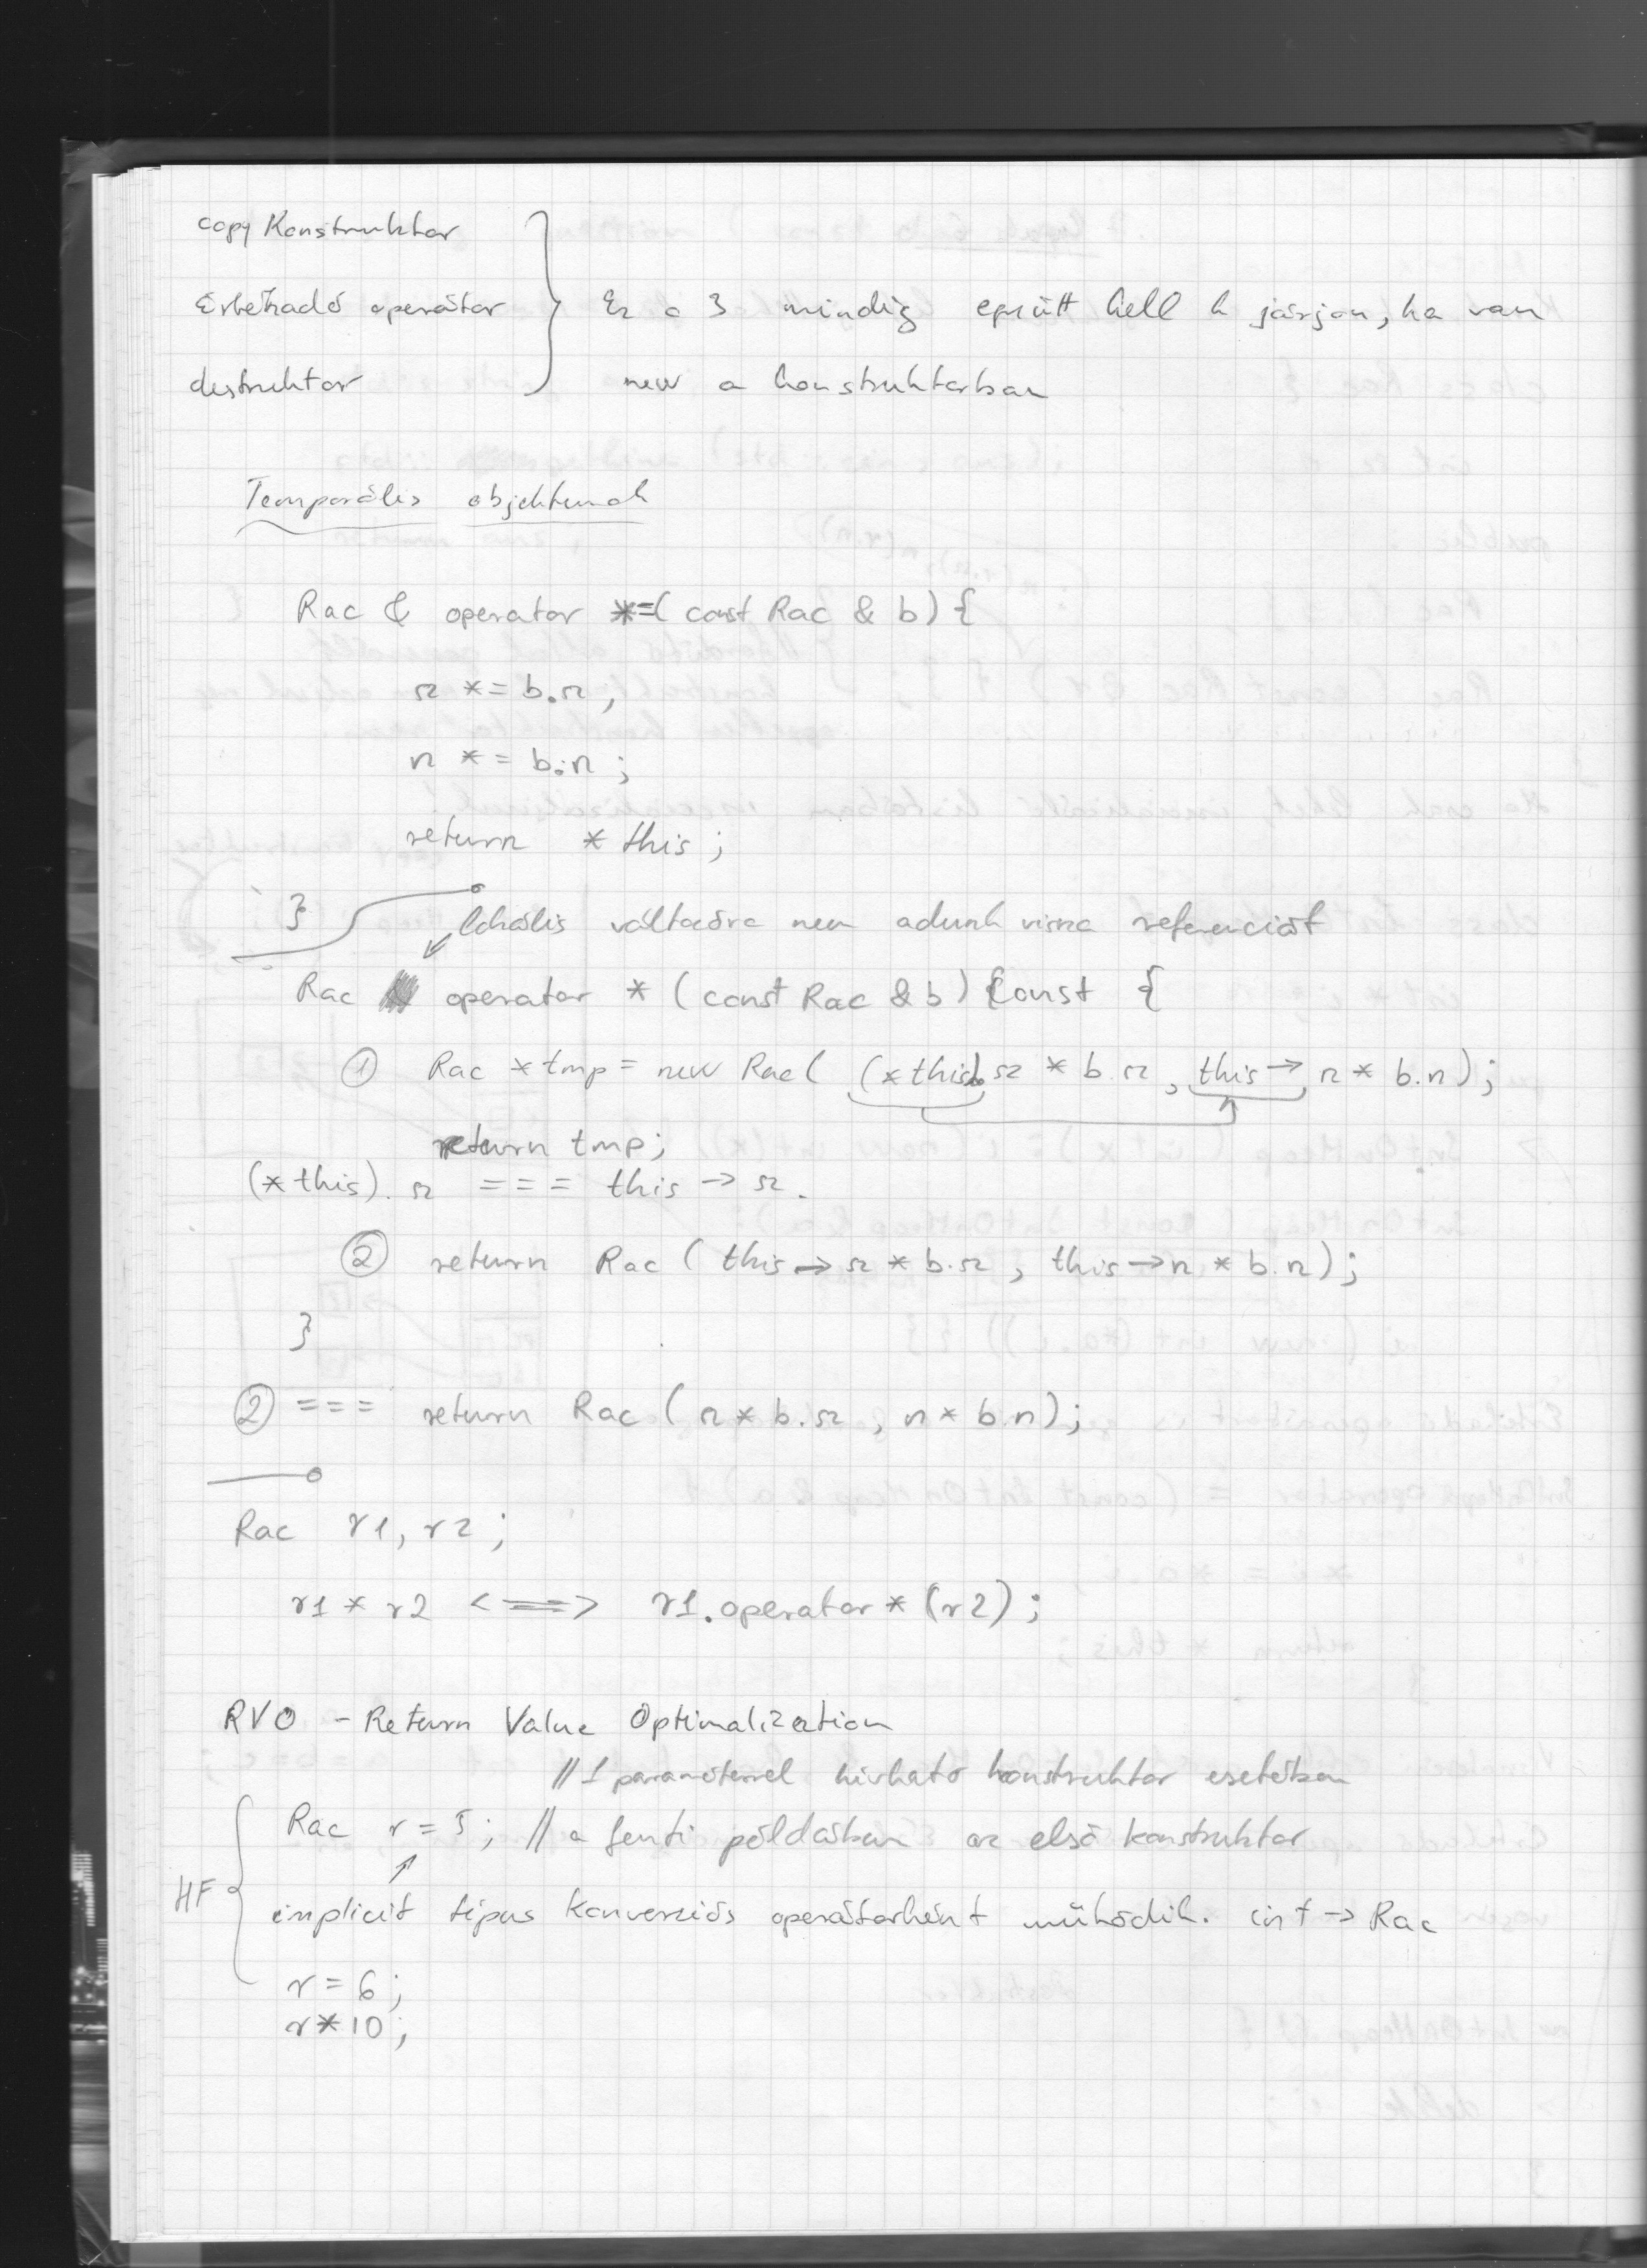 copy Konstruktor
Értékadó operátor } Ez a 3 mindig együtt kell h járjon, ha van
destruktor new a konstruktorban
Temporális objektumok
Rac & operator *=( const Rac & b) {
sz *= b.sz;
n *= b.n;
return *this;
}
lokális váltózóra nem adunk vissza referenciát
Rac operator * (const Rac & b) const {
① Rac *tmp = new Rac( (*this).sz * b.sz, this→n * b.n);
return tmp;
(*this).sz === this→sz.
② return Rac (this→sz * b.sz, this→n * b.n);
}
② === return Rac (sz * b.sz, n * b.n);
Rac r1, r2;
r1 * r2 <==> r1.operator*(r2);
RVO - Return Value Optimalization
// 1 paraméterrel hívható konstruktor esetében
Rac r = 5; // a fenti példában az első konstruktor
HF { implicit típus konverziós operátorként működik. int → Rac
r = 6;
r*10;